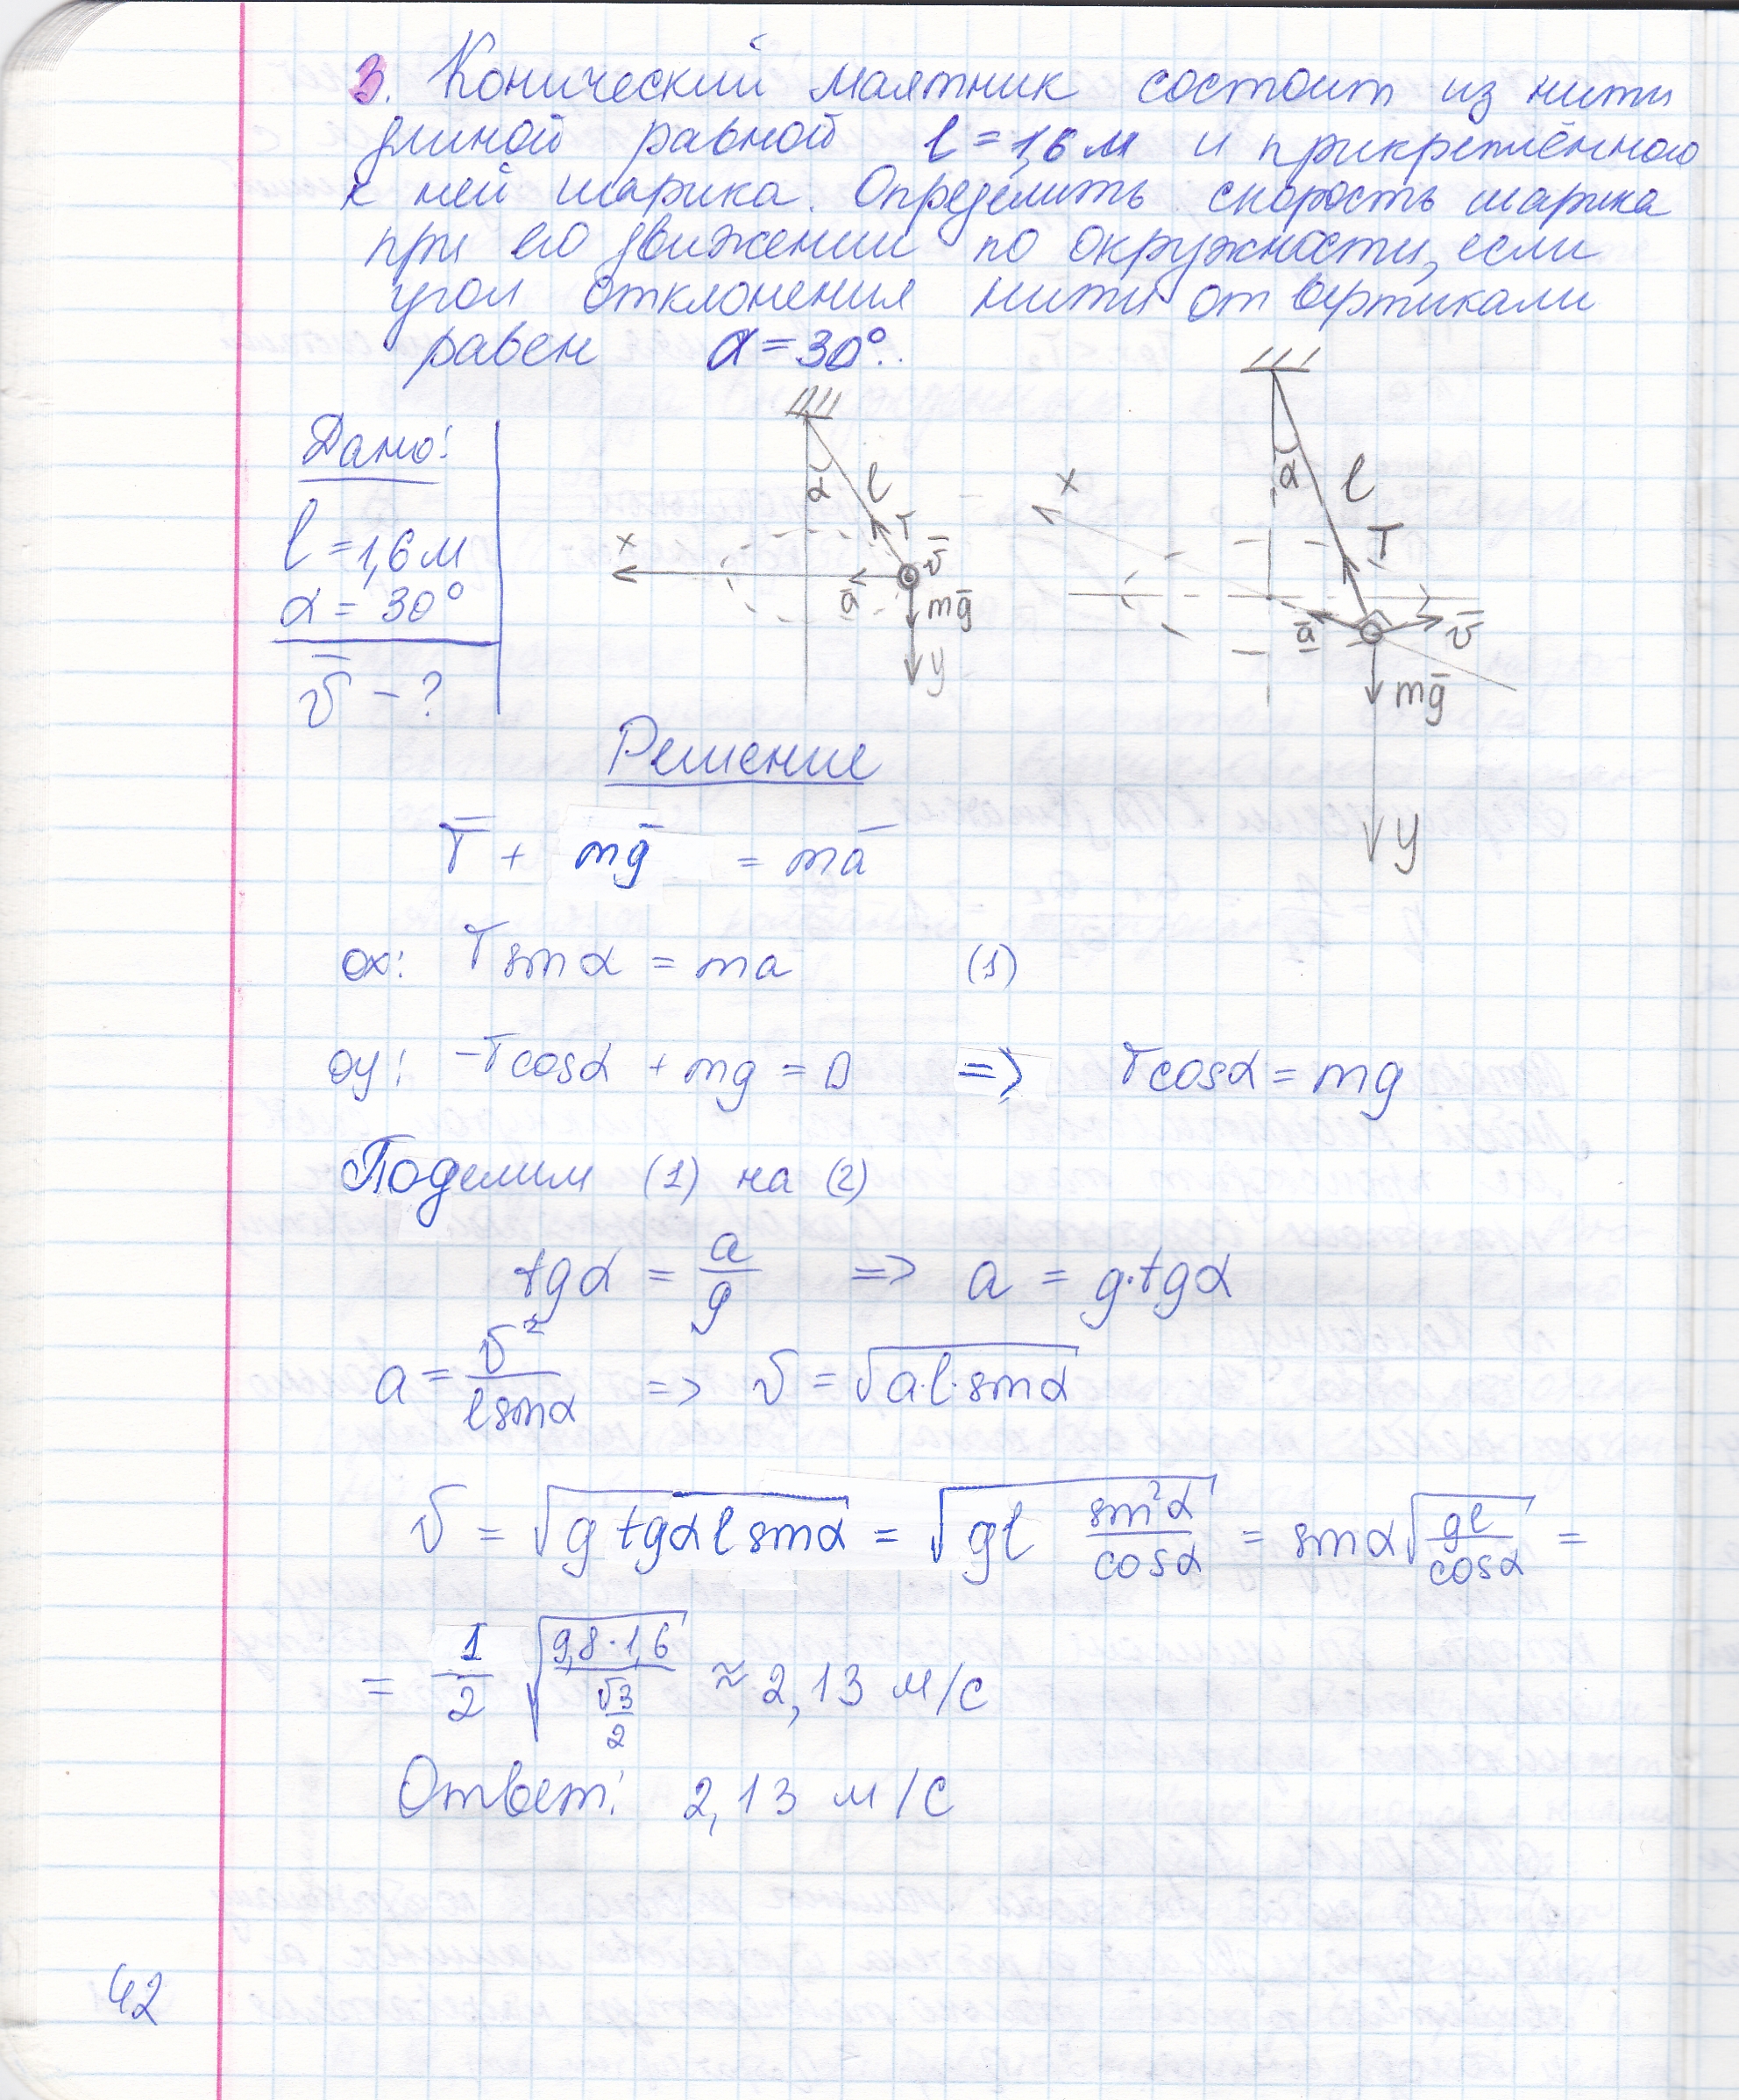 3. Конический маятник состоит из нити
длиной равной l = 1,6 м и прикреплённого
к ней шарика. Определить скорость шарика
при его движении по окружности, если
угол отклонения нити от вертикали
равен α = 30°.
Дано:
l = 1,6 м
α = 30°
v̄ - ?
α l T v̄ x ā mḡ y
α l T x ā v̄ mḡ y
Решение
T̄ + mḡ = mā
ox: T sin α = ma (1)
oy: -T cos α + mg = 0 => T cos α = mg
Поделим (1) на (2)
tg α = a/g => a = g·tg α
a = v²/(l sin α) => v = √(a·l·sin α)
v = √(g tg α l sin α) = √(gl sin²α/cos α) = sin α √(gl/cos α) =
= 1/2 √(9,8·1,6/(√3/2)) ≈ 2,13 м/с
Ответ: 2,13 м/с
42